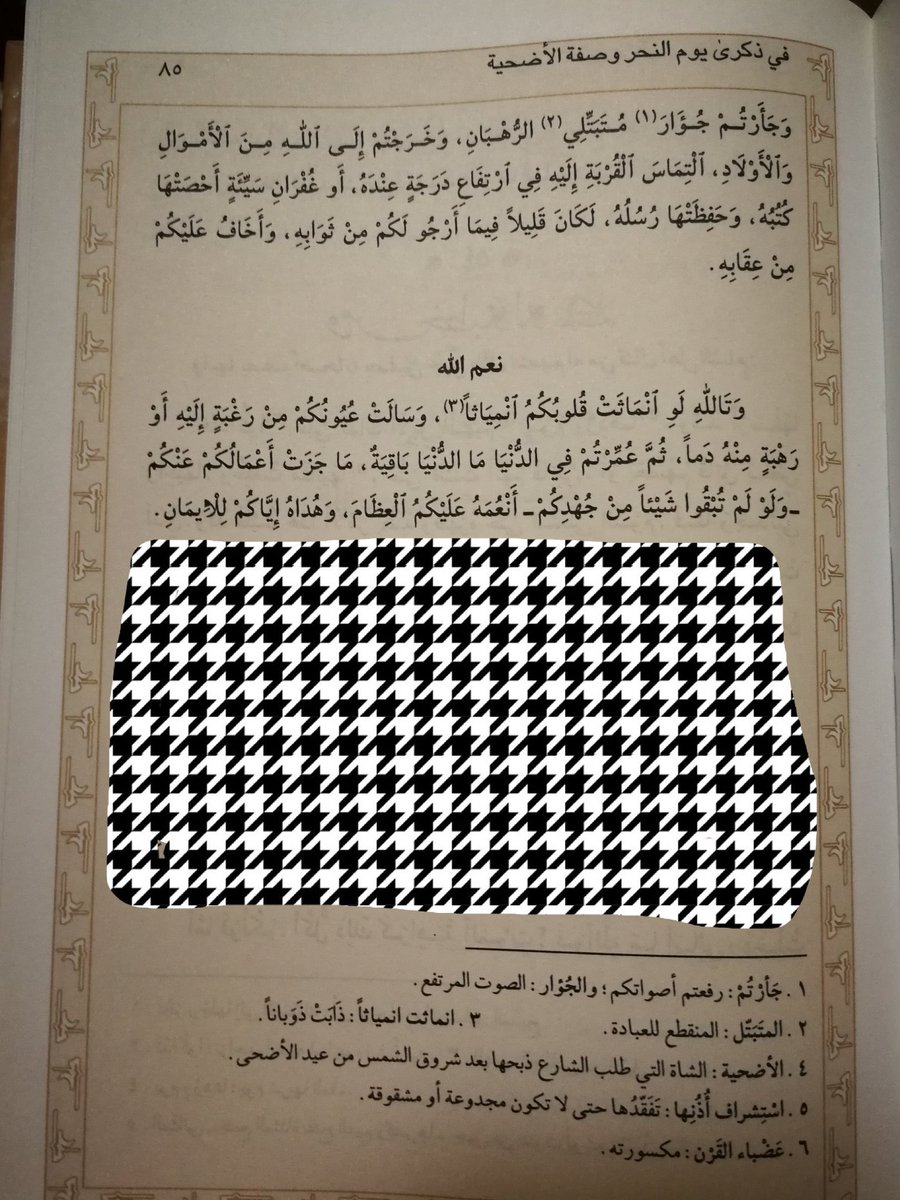 في ذكرىٰ يوم النحر وصفة الأضحية ٨٥
وَجَأَرْتُمْ جُؤَارَ(١) مُتَبَتِّلِي(٢) الرُّهْبَانِ، وَخَرَجْتُمْ إِلَى ٱللهِ مِنَ ٱلْأَمْوَالِ
وَٱلْأَوْلَادِ، ٱلْتِمَاسَ ٱلْقُرْبَةِ إِلَيْهِ فِي ٱرْتِفَاعِ دَرَجَةٍ عِنْدَهُ، أَو غُفْرَانِ سَيِّئَةٍ أَحْصَتْهَا
كُتُبُهُ، وَحَفِظَتْهَا رُسُلُهُ، لَكَانَ قَلِيلاً فِيمَا أَرْجُو لَكُمْ مِنْ ثَوَابِهِ، وَأَخَافُ عَلَيْكُمْ
مِنْ عِقَابِهِ.
نعم الله
وَتَاللهِ لَوِ ٱنْمَاثَتْ قُلوبُكُمُ ٱنْمِيَاثاً(٣)، وَسَالَتْ عُيُونُكُمْ مِنْ رَغْبَةٍ إِلَيْهِ أَوْ
رَهْبَةٍ مِنْهُ دَماً، ثُمَّ عُمِّرْتُمْ فِي الدُّنْيَا مَا الدُّنْيَا بَاقِيَةٌ، مَا جَزَتْ أَعْمَالُكُمْ عَنْكُمْ
ـ وَلَوْ لَمْ تُبْقُوا شَيْئاً مِنْ جُهْدِكُمْ ـ أَنْعُمَهُ عَلَيْكُمُ ٱلْعِظَامَ، وَهُدَاهُ إِيَّاكُمْ لِلْإِيمَانِ.
١. جَأرْتُمْ: رفعتم أصواتكم؛ والجُؤار: الصوت المرتفع.
٢. المتَبَتّل: المنقطع للعبادة. ٣. انماثت انمياثاً: ذَابَتْ ذَوَباناً.
٤. الأضحية: الشاة التي طلب الشارع ذبحها بعد شروق الشمس من عيد الأضحى.
٥. اسْتِشراف أُذُنِها: تَفَقّدُها حتى لا تكون مجدوعة أو مشقوقة.
٦. عَضْباء القَرْن: مكسورته.